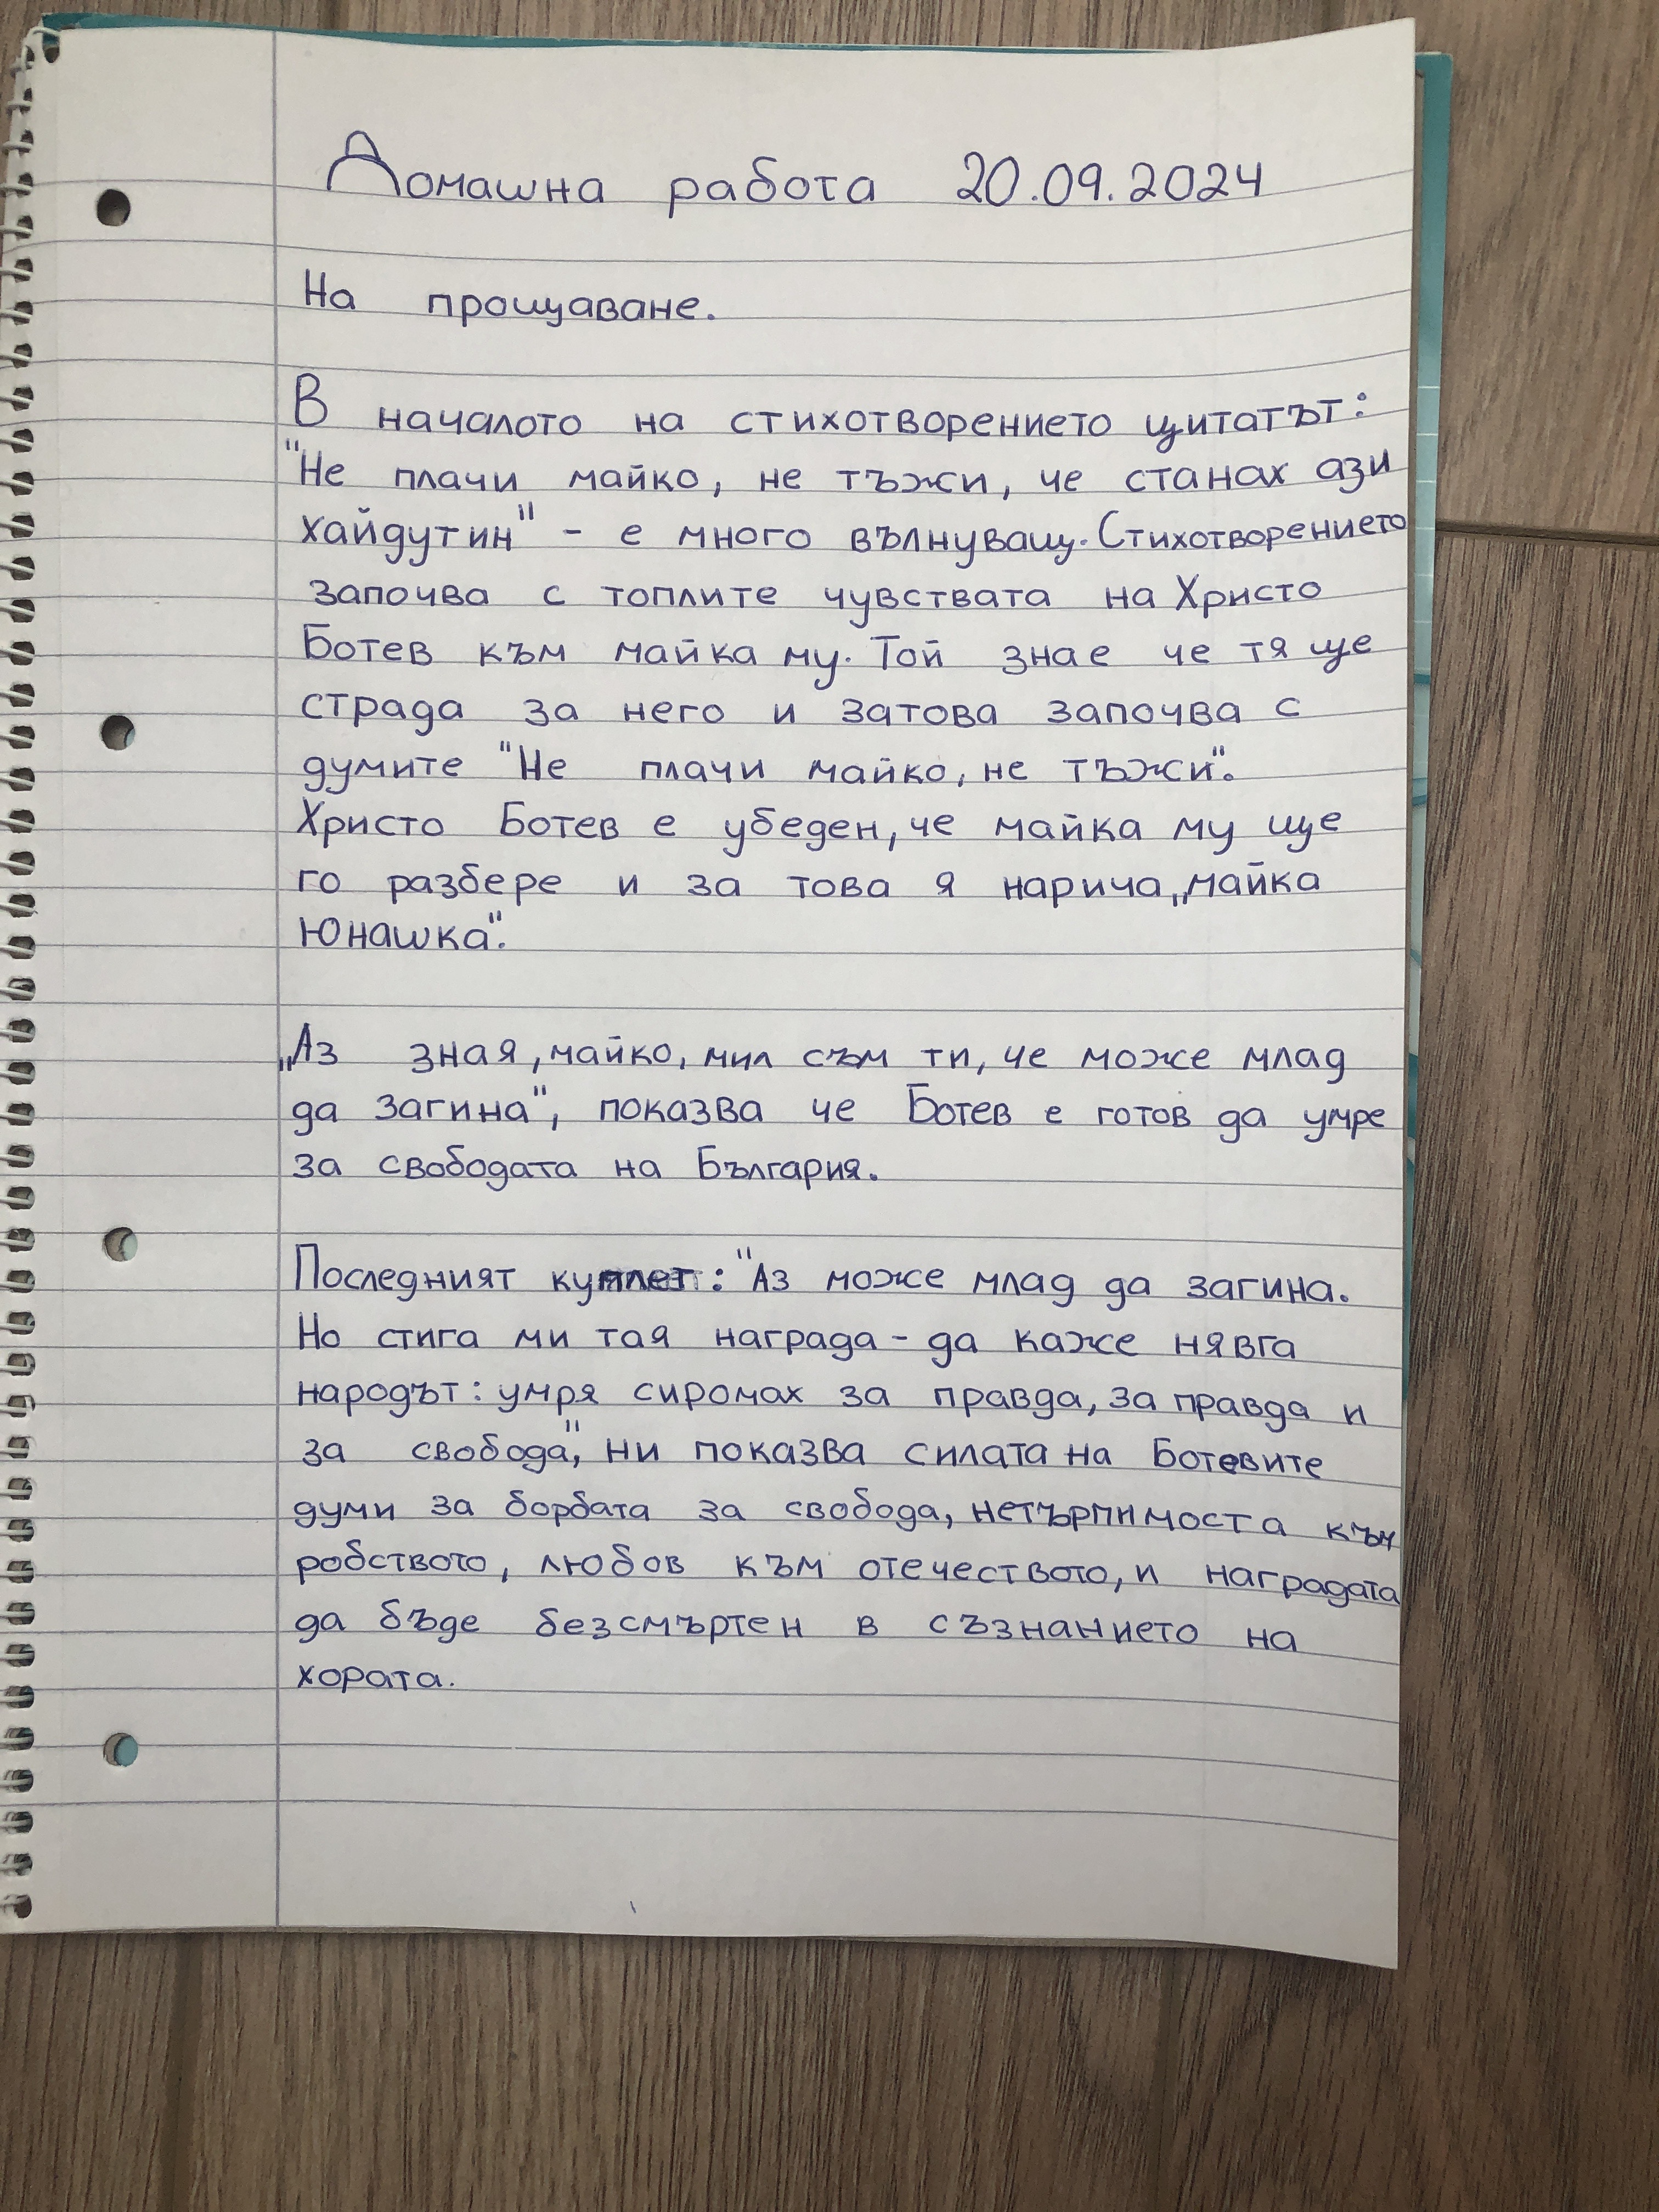 Домашна работа 20.09.2024
На прощаване.
В началото на стихотворението цитатът:
"Не плачи майко, не тъжи, че станах ази
хайдутин" - е много вълнуващ. Стихотворението
започва с топлите чувствата на Христо
Ботев към майка му. Той знае че тя ще
страда за него и затова започва с
думите "Не плачи майко, не тъжи".
Христо Ботев е убеден, че майка му ще
го разбере и за това я нарича „майка
юнашка".
„Аз зная, майко, мил съм ти, че може млад
да загина", показва че Ботев е готов да умре
за свободата на България.
Последният куплет: "Аз може млад да загина.
Но стига ми тая награда - да каже нявга
народът: умря сиромах за правда, за правда и
за свобода", ни показва силата на Ботевите
думи за борбата за свобода, нетърпимоста към
робството, любов към отечеството, и наградата
да бъде безсмъртен в съзнанието на
хората.